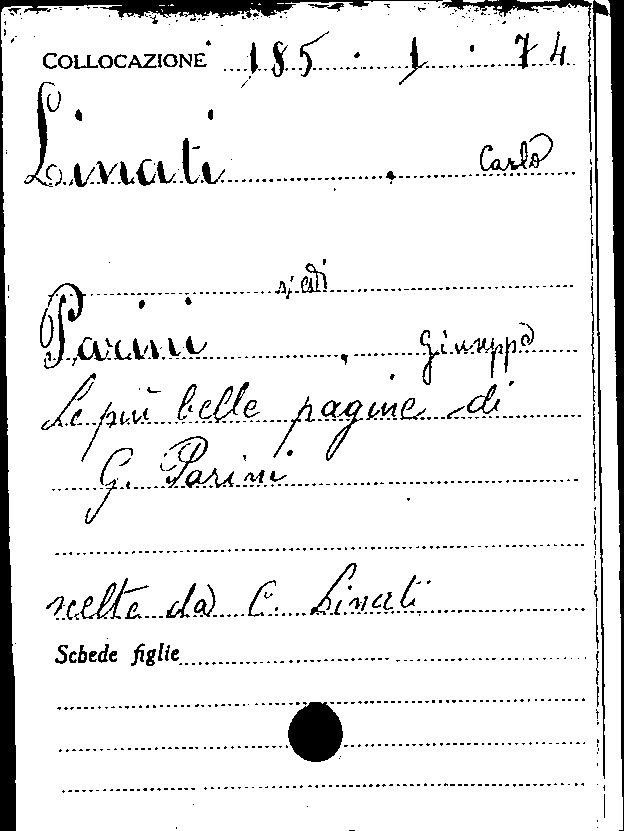 COLLOCAZIONE 185 . 1 . 74
Linati , Carlo
vedi
Parini , Giuseppe
Le più belle pagine di
G. Parini
scelte da C. Linati
Schede figlie